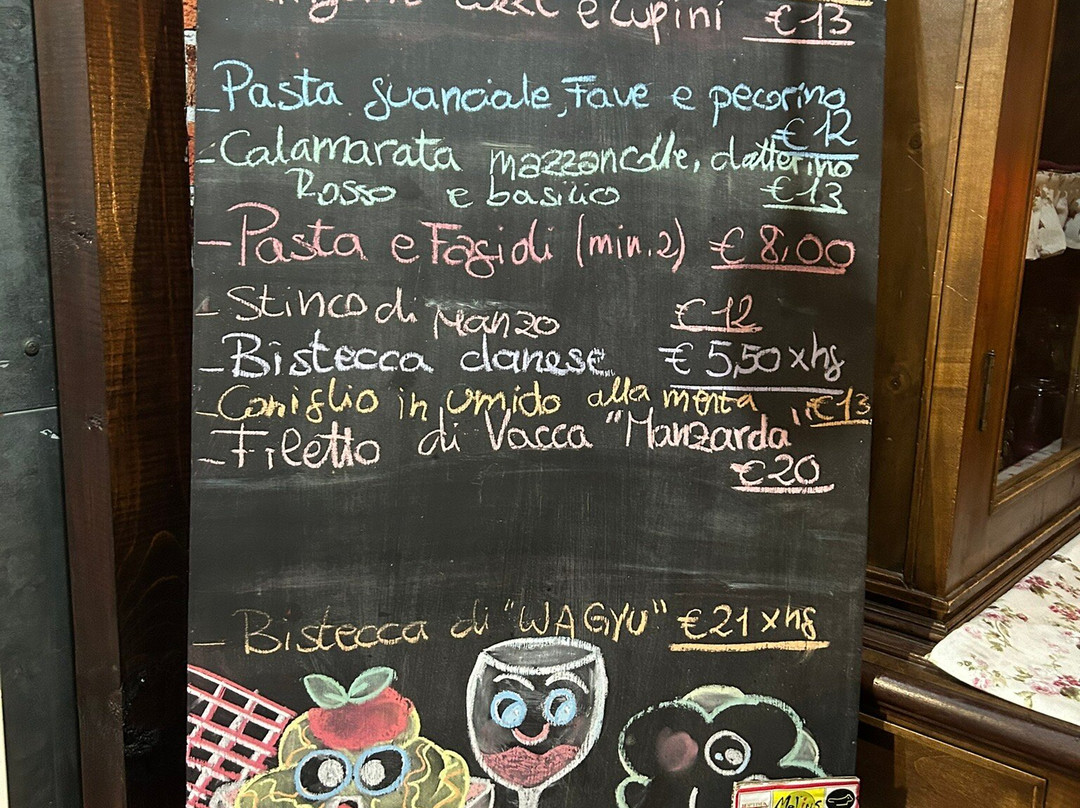 e Lupini €13
- Pasta guanciale, Fave e pecorino
€12
- Calamarata mazzancolle, datterino
Rosso e basilico €13
- Pasta e Fagioli (min. 2) € 8,00
- Stinco di Manzo € 12
- Bistecca danese € 5,50 x hg
- Coniglio in umido alla menta €13
- Filetto di Vacca "Manzarda"
€20
- Bistecca di "WAGYU" €21 x hg
Melius